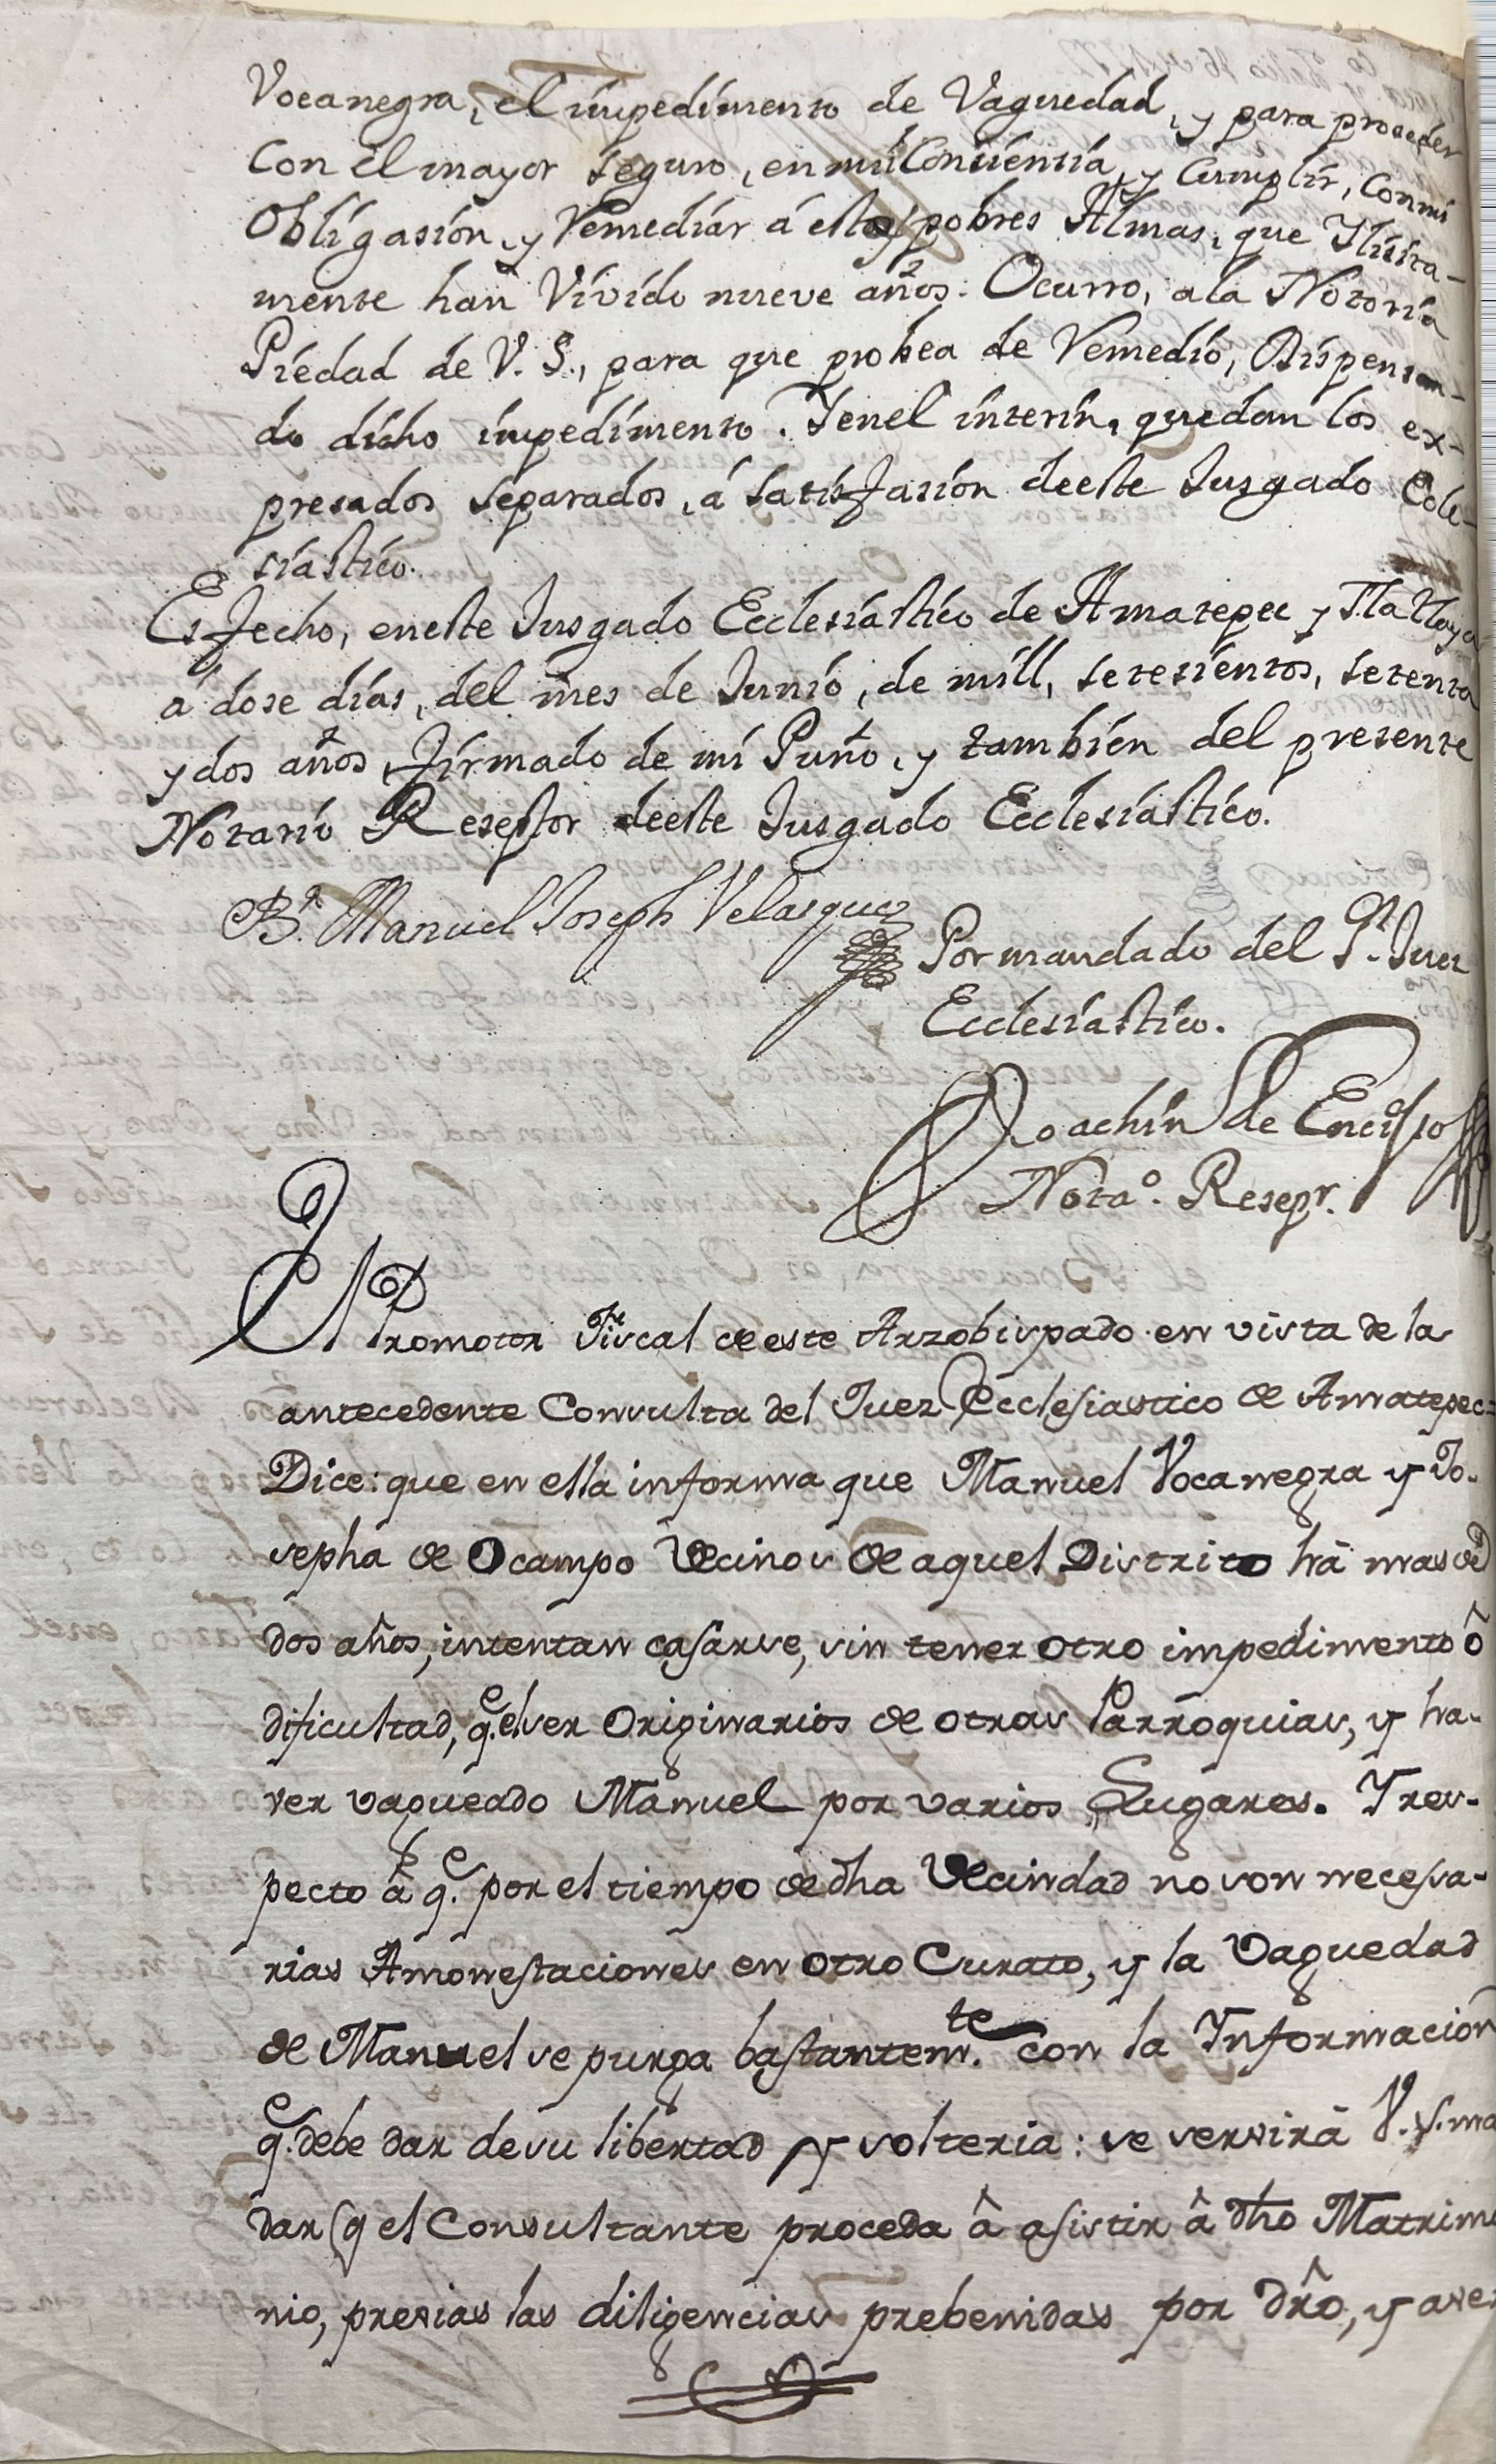 Vocanegra, el impedimento de Vaguedad, y para proceder
con el mayor seguro, en mi Consiensia, y Cumplir, con mi
Obligasión, y Remediár á estos pobres Almas, que Ilisita-
mente han Vivido nueve años. Ocurro, a la Notoria
Piedad de V. S., para que probea de Remedio, Dispensan-
do dicho impedimento. Y en el interin, quedan los ex-
presados separados, á satisfasión de este Jusgado Ecle-
siastico.
Es fecho, en este Jusgado Ecclesiastico de Amatepec y Tlatlaya
á dose días, del mes de Junio, de mill, setesientos, setenta
y dos años, firmado de mi Puño, y tambien del presente
Notario Reseptor de este Jusgado Ecclesiastico.
Br. Manuel Joseph Velasques
Por mandado del Sr. Jues
Ecclesiastico.
Joachin de Enciso
Notao. Resepr.
El Promotor Fiscal de este Arzobispado en vista de la
antecedente Consulta del Juez Ecclesiastico de Amatepec=
Dice: que en ella informa que Manuel Vocanegra y Jo-
sepha de Ocampo Vecinos de aquel Distrito há mas de
dos años, intentan casarse, sin tener otro impedimento ô
dificultad, qe. el ser Originarios de otras Parroquias, y ha-
ver vagueado Manuel por varios Lugares. Y res-
pecto â qe. por el tiempo de dha Vecindad no son necesa-
rias Amonestaciones en otro Curato, y la Vaguedad
de Manuel se purga bastantemte. con la Informacion
qe. debe dar de su libertad y solteria: se servirá V. S. man
dar q el Consultante proceda â asistir â dho Matrimo
nio, previas las diligencias prebenidas por dro, y aver